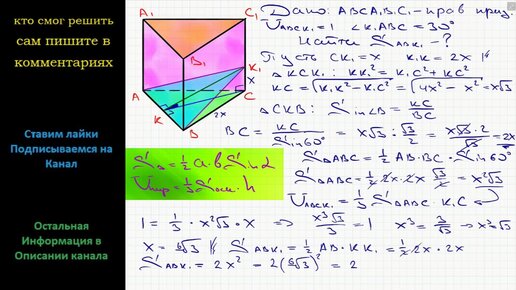 кто смог решить
сам пишите в
комментариях
Ставим лайки
Подписываемся на
Канал
Остальная
Информация в
Описании канала
A₁
C₁
B₁
K₁
X
A
C
K
2x
B
S_Δ = 1/2 a·b Sin α
V_пир = 1/3 S_осн · h
Дано: ABCA₁B₁C₁ - прав. приз.
V_ABCK₁ = 1 ∠K₁ABC = 30°
Найти S_ABK₁ - ?
Пусть CK₁ = x K₁K = 2x
ΔKCK₁: KK₁² = K₁C² + KC²
KC = √(K₁K² - K₁C²) = √(4x² - x²) = x√3
ΔCKB: Sin∠B = KC/BC
BC = KC/Sin60° = x√3 : √3/2 = x√3·2/√3 = 2x
S_ΔABC = 1/2 AB·BC·Sin60°
S_ΔABC = 1/2·2x·2x √3/2 = x²√3
V_ABCK₁ = 1/3 S_ABC · K₁C
1 = 1/3 · x²√3 · x ⇒ x³√3/3 = 1 x³ = 3/√3 ⇒ x³ = √3
x = ⁶√3 S_ABK₁ = 1/2 AB·KK₁ = 1/2·2x·2x
S_ABK₁ = 2x² = 2(⁶√3)² = 2